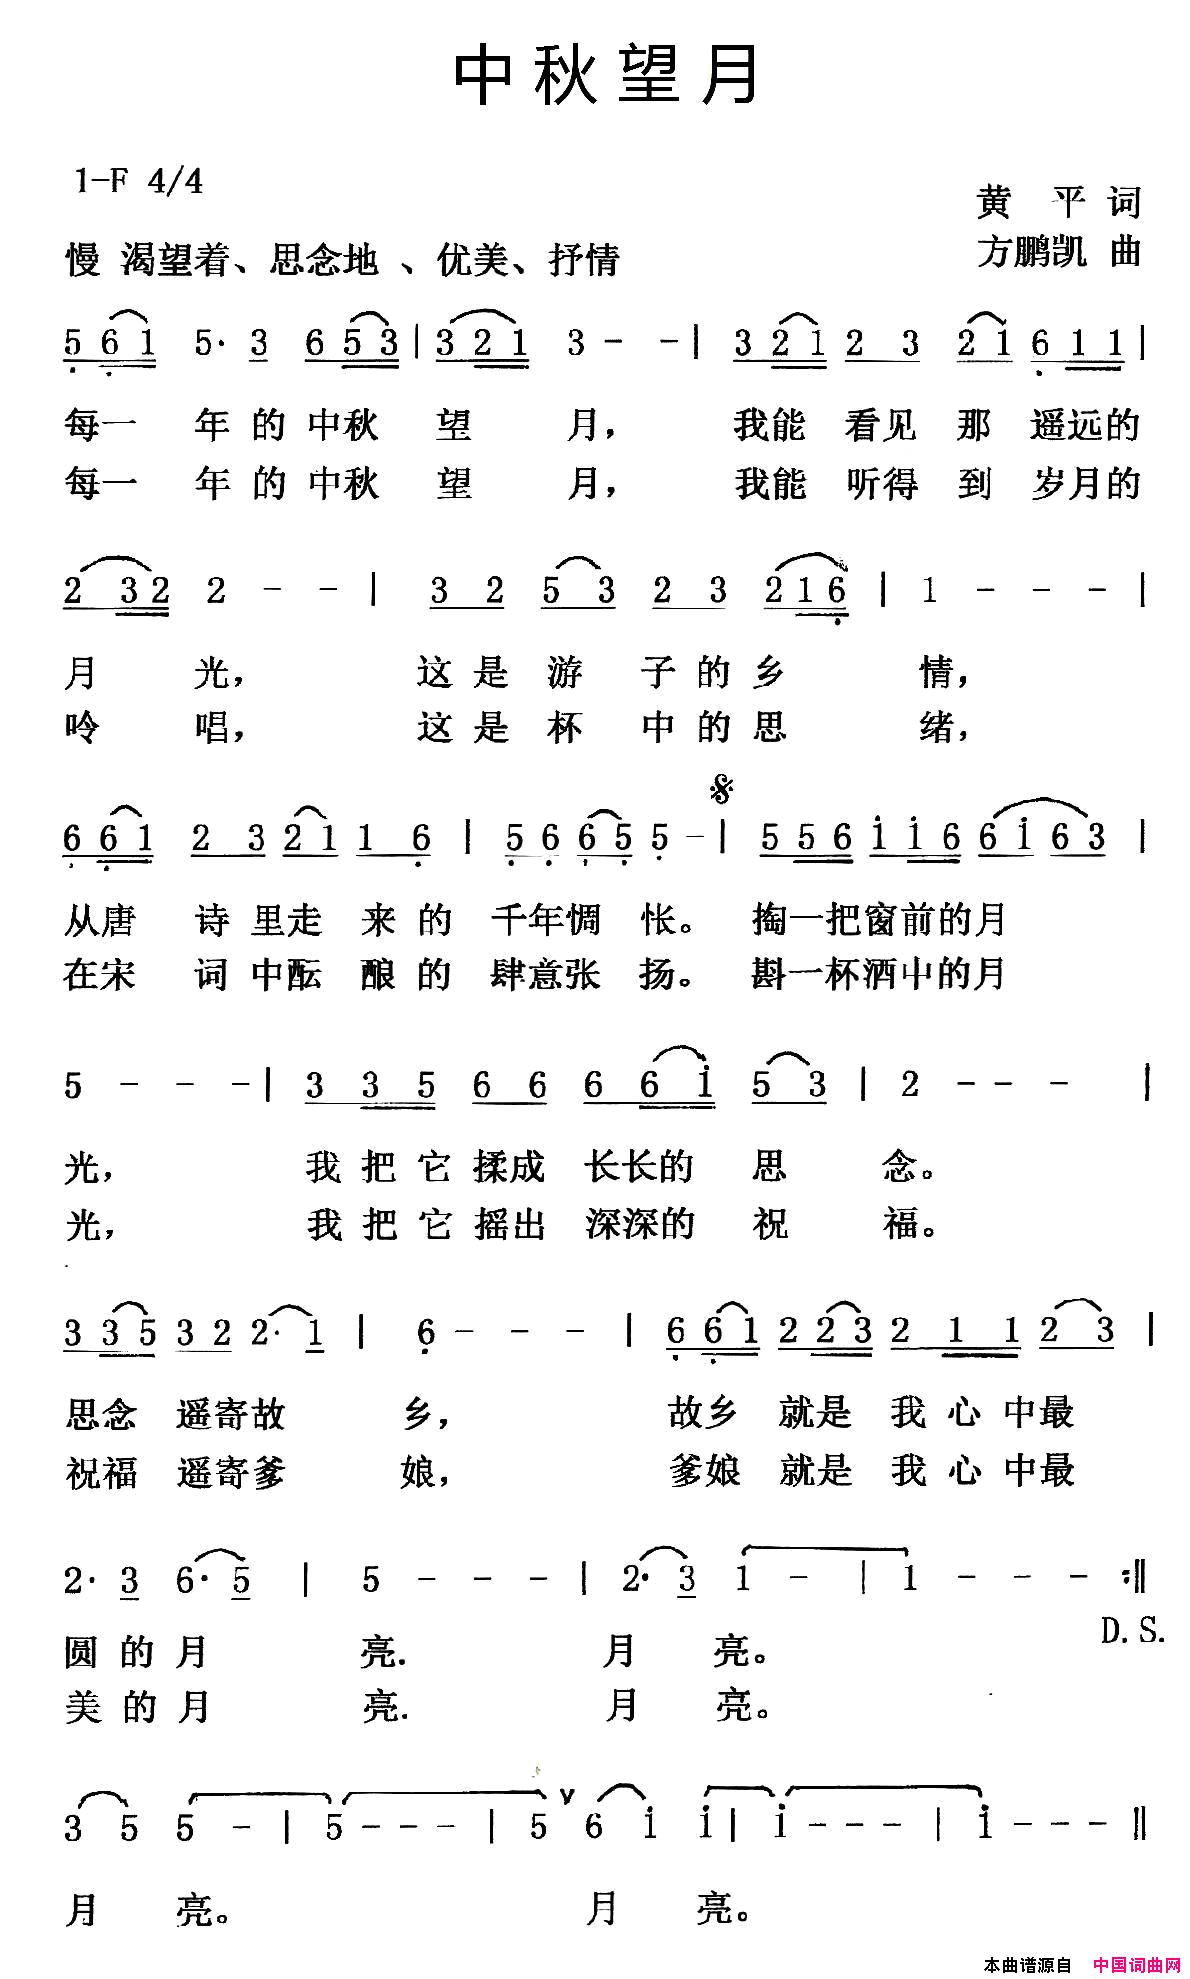 中秋望月
1-F 4/4
黄 平 词
慢 渴望着、思念地 、优美、抒情
方鹏凯 曲
5 6 1 5· 3 6 5 3 | 3 2 1 3 - - | 3 2 1 2 3 2 1 6 1 1 |
每一 年 的 中秋 望 月， 我能 看见 那 遥远的
每一 年 的 中秋 望 月， 我能 听得 到 岁月的
2 3 2 2 - - | 3 2 5 3 2 3 2 1 6 | 1 - - - |
月 光， 这 是 游 子 的 乡 情，
呤 唱， 这 是 杯 中 的 思 绪，
6 6 1 2 3 2 1 1 6 | 5 6 6 5 5 - | 5 5 6 i i 6 6 i 6 3 |
从唐 诗 里走 来 的 千年惆 怅。 掏一把窗前的月
在宋 词 中酝 酿 的 肆意张 扬。 斟一杯酒中的月
5 - - - | 3 3 5 6 6 6 6 i 5 3 | 2 - - - |
光， 我 把 它 揉成 长长的 思 念。
光， 我 把 它 摇出 深深的 祝 福。
3 3 5 3 2 2· 1 | 6 - - - | 6 6 1 2 2 3 2 1 1 2 3 |
思念 遥寄故 乡， 故乡 就是 我 心 中最
祝福 遥寄爹 娘， 爹娘 就是 我 心 中最
2· 3 6· 5 | 5 - - - | 2· 3 1 - | 1 - - - :‖
D.S.
圆 的 月 亮. 月 亮。
美 的 月 亮. 月 亮。
3 5 5 - | 5 - - - | 5 ∨ 6 i i | i - - - | i - - - ‖
月 亮。 月 亮。
本曲谱源自 中国词曲网